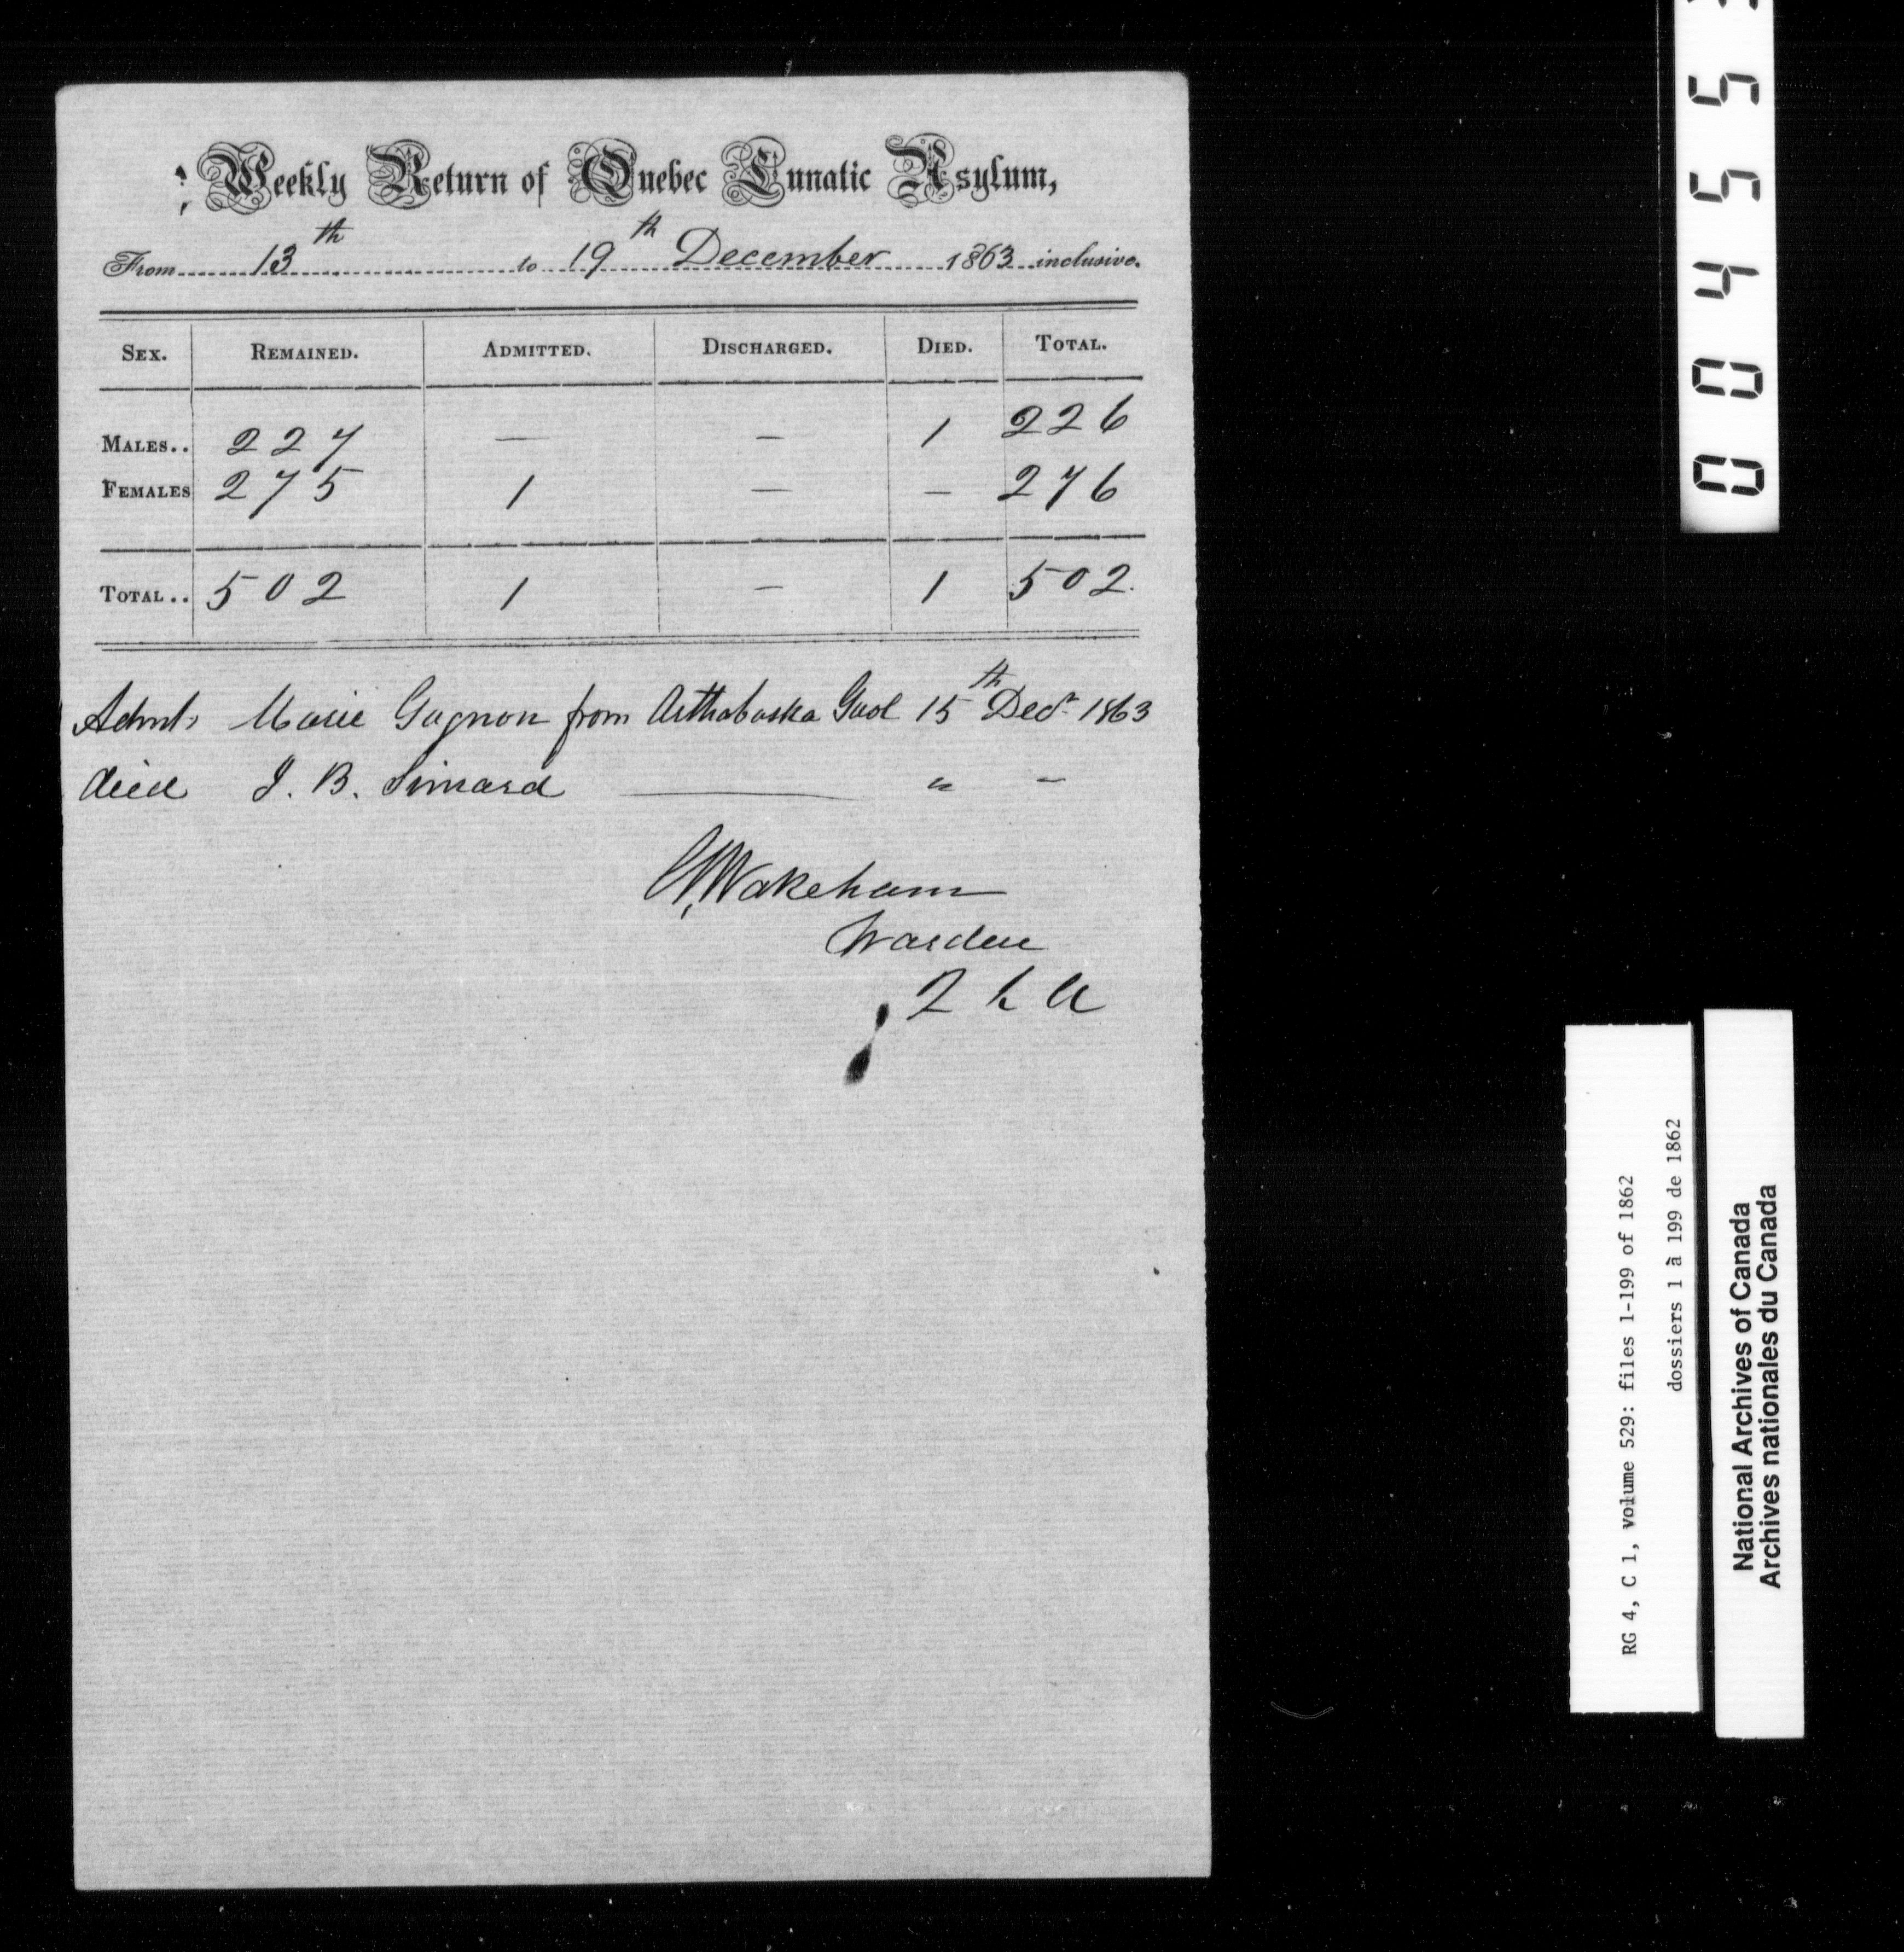 Weekly Return of Quebec Lunatic Asylum,
From 13th to 19th December 1863 inclusive.
SEX. REMAINED. ADMITTED. DISCHARGED. DIED. TOTAL.
MALES.. 227 — — 1 226
FEMALES 275 1 — — 276
TOTAL.. 502 1 — 1 502.
Admt. Marie Gagnon from Arthabaska Gaol 15th Decr 1863
died J. B. Simard —— " –
Wakeham
Warden
Q L A
00455
RG 4, C 1, volume 529: files 1-199 of 1862
dossiers 1 à 199 de 1862
National Archives of Canada
Archives nationales du Canada